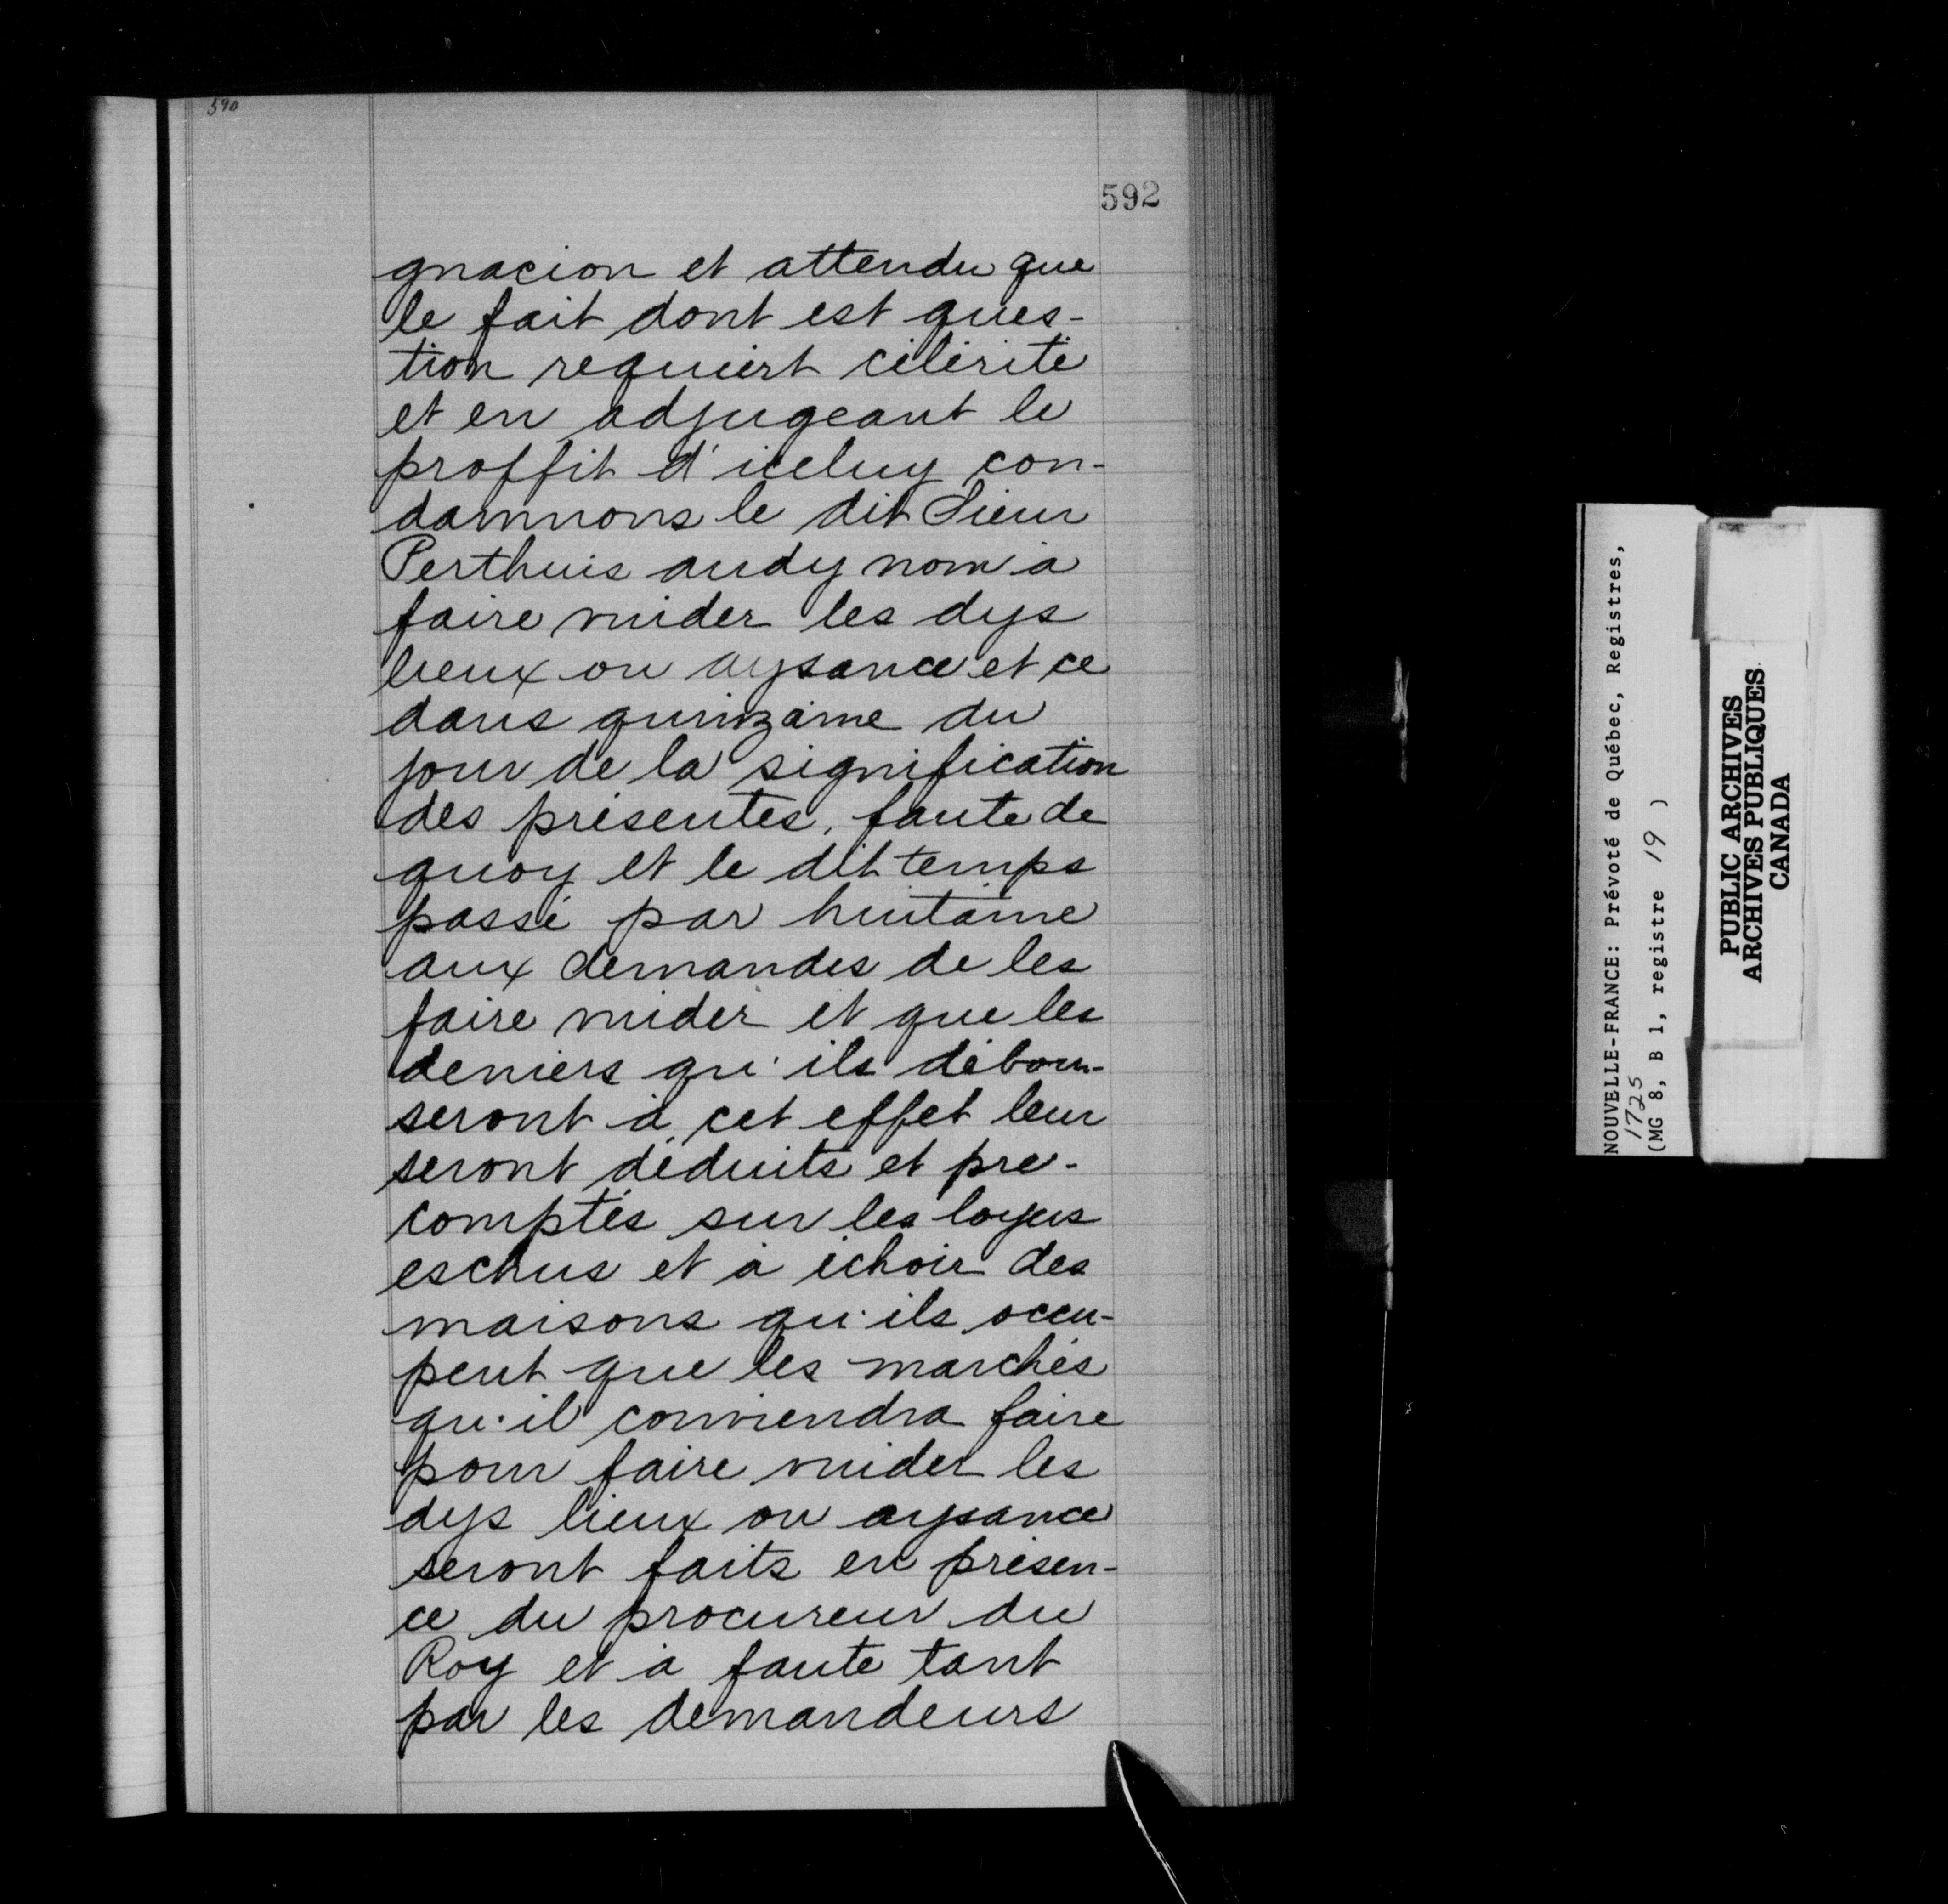 590
592
gnacion et attendu que
le fait dont est ques-
tion requiert célérité
et en adjugeant le
proffit d'iceluy con-
damnons le dit Sieur
Perthuis audy nom à
faire vuider les dys
lieux ou aysance et ce
dans quinzaine du
jour de la signification
des présentes, faute de
quoy et le dit temps
passé par huitaine
aux demandes de les
faire vuider et que les
deniers qu'ils débour-
seront à cet effet leur
seront déduits et pre-
comptés sur les loyers
eschus et à échoir des
maisons qu'ils occu-
pent que les marchés
qu'il conviendra faire
pour faire vuider les
dys lieux ou aysance
seront faits en présen-
ce du procureur du
Roy et à faute tant
par les demandeurs
NOUVELLE-FRANCE: Prévoté de Québec, Registres,
1725
(MG 8, B 1, registre 19 )
PUBLIC ARCHIVES
ARCHIVES PUBLIQUES
CANADA